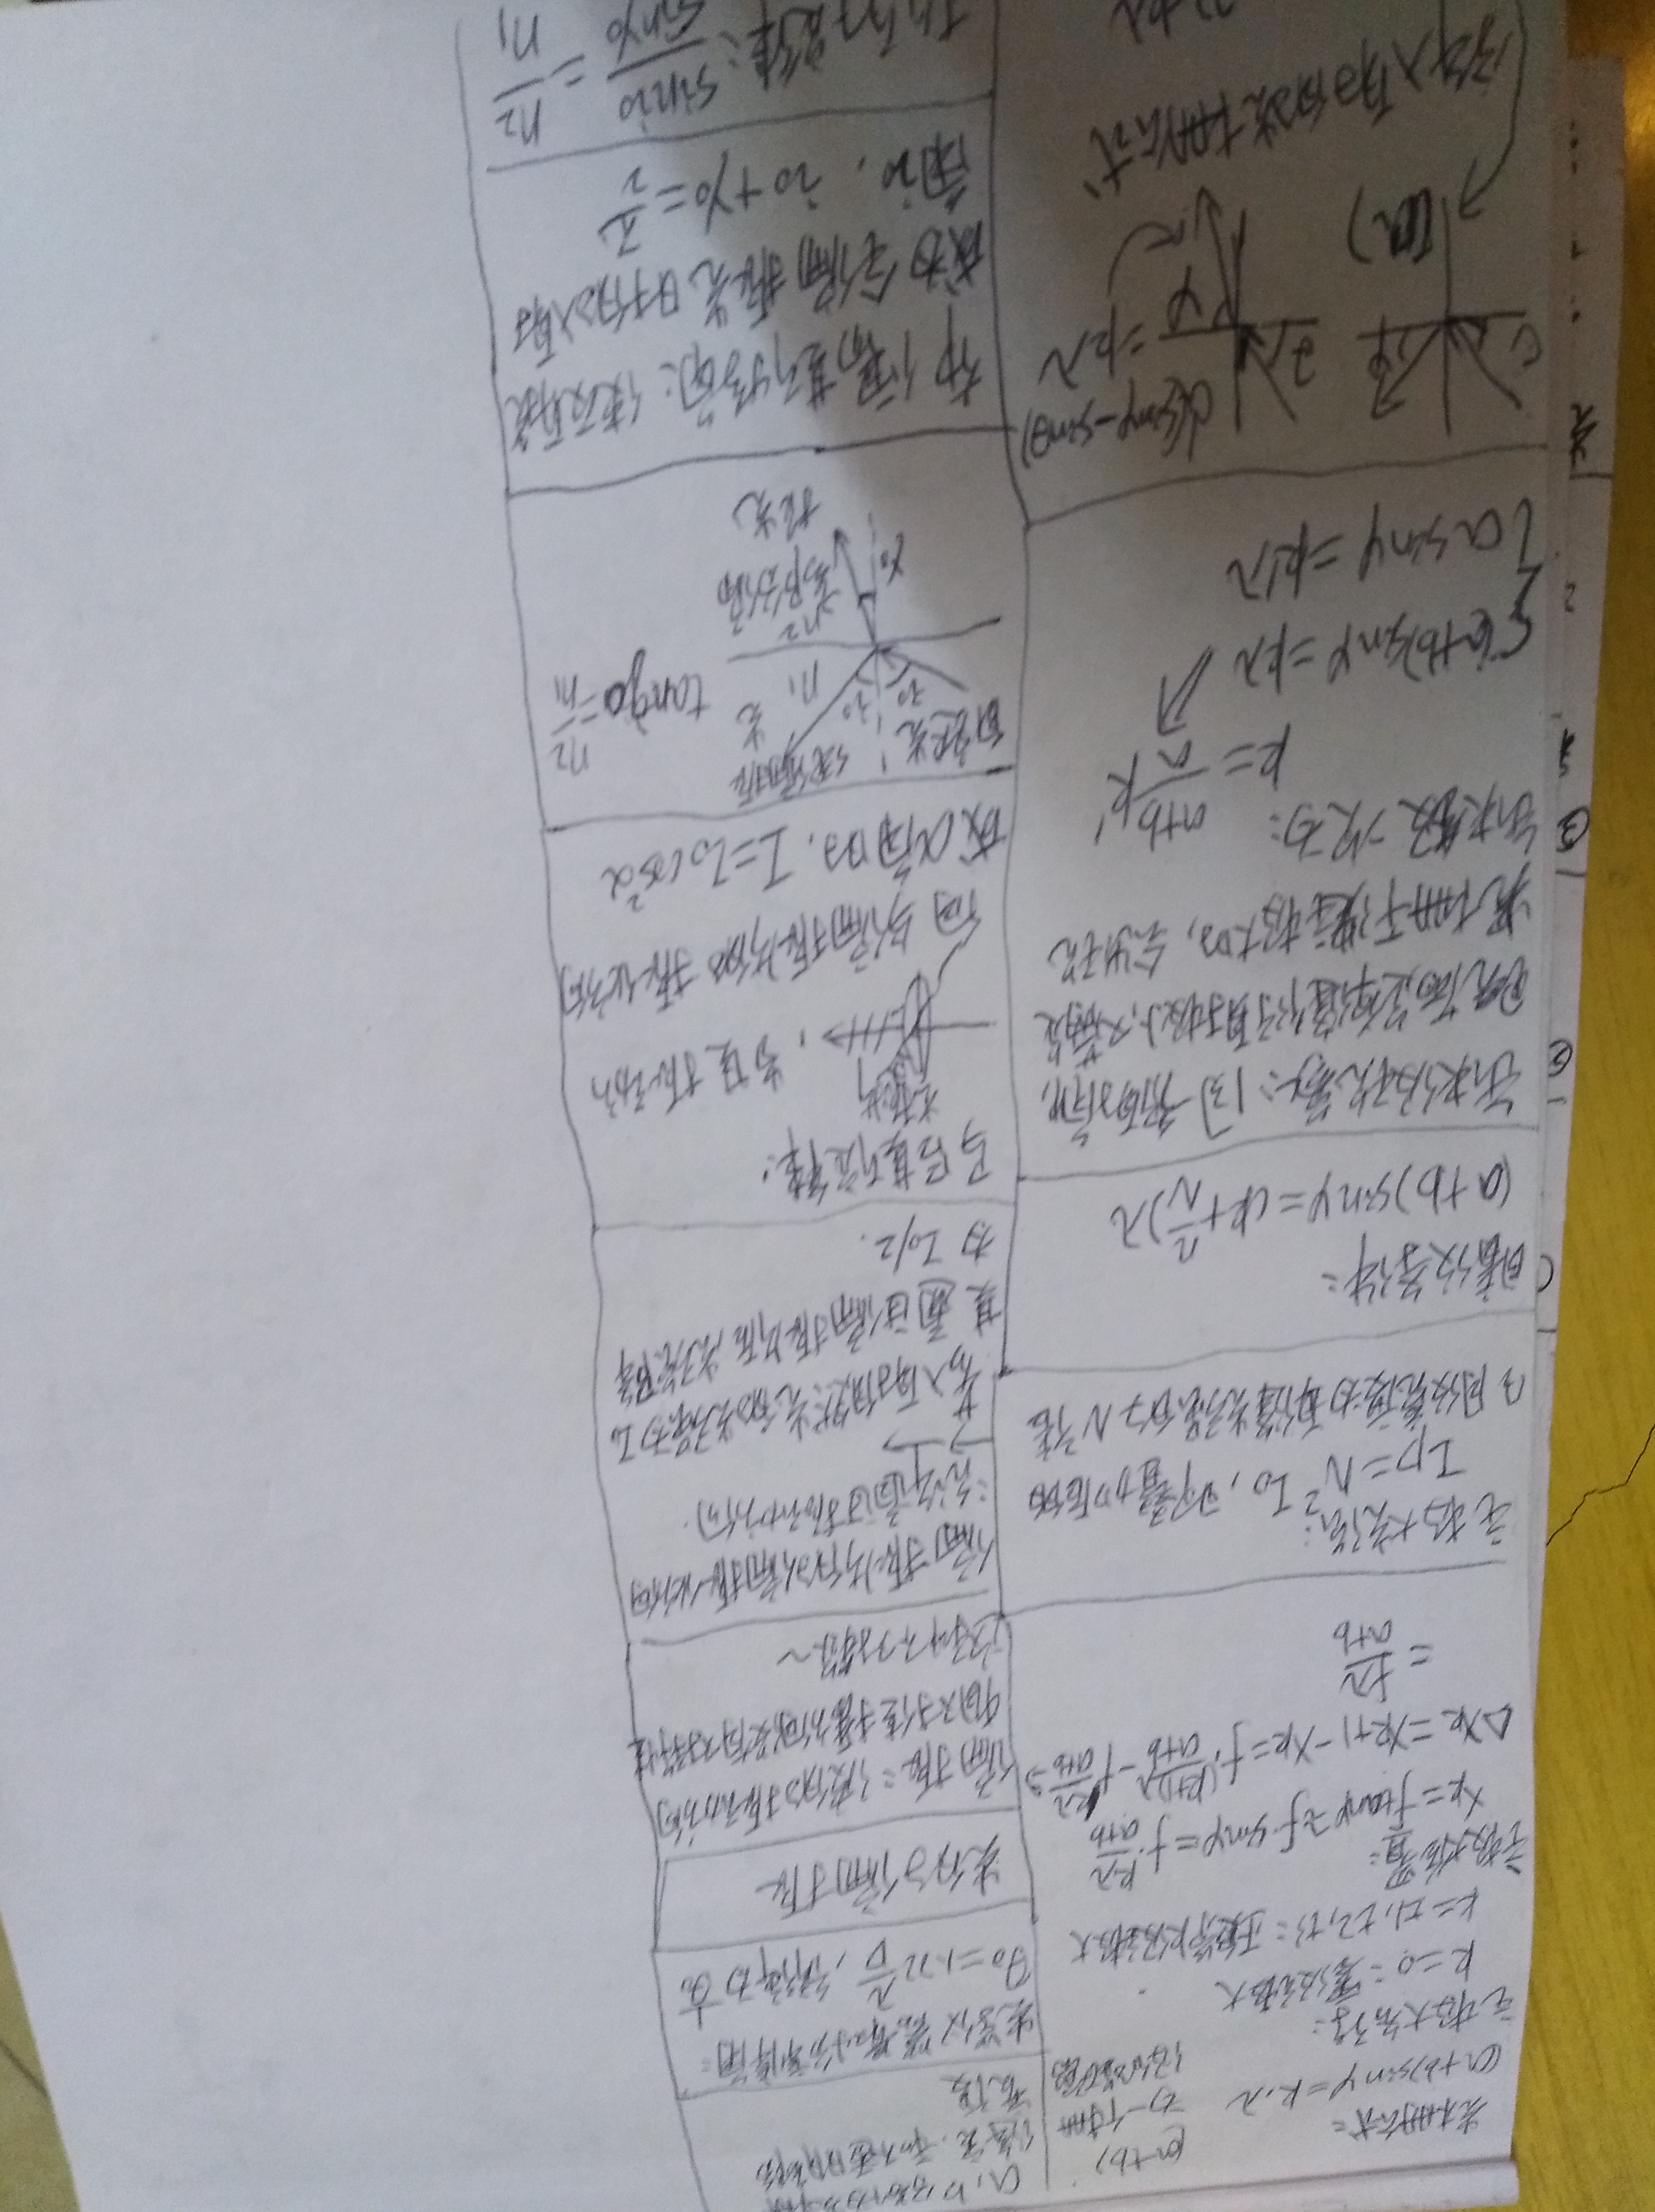 光栅公式:
(a+b)sinφ=k·λ
(a+b)
为一个栅
主极大名称:
k=0:零级主极大
k=±1,±2,±3:正负第k级主极大
主极大位置:
x_k=f tanφ≈f·sinφ=f·kλ/(a+b)
Δx_k=x_{k+1}-x_k=f·(k+1)λ/(a+b)-f kλ/(a+b)=
=fλ/(a+b)
主极大光强:
I_P=N²I₀,即叠加后的
明纹亮度为单缝光强的N²倍
暗纹条件:
(a+b)sinφ=(k+n/N)λ
缺级现象:同一衍射角中,
既满足单缝衍射极小,又满足
光栅干涉主极大时,会出现
缺级 次为:
k=(a+b)/a k'
{(a+b)sinφ=kλ
asinφ=k'λ
φ
d(sinφ-sinθ)
=kλ
φ
斜入射的光栅公式
a,b分别为
缝宽,和不透明部分
宽度
光学仪器最小分辨率角:
θ₀=1.22 λ/D,分辨率为1/θ₀
光的偏振
偏振:波的振动方向
相对传播方向没有对称性
这种不对称~
偏振片的偏振化方向
:允许通过振动方向.
若入射自然光的光强为I₀
其通过偏振片后光强降
为I₀/2.
马吕斯定律:
,当其振动方
向与偏振片的振化方向
成α角时,I=I₀cos²α
自然光
线偏振
光
i₀
i₀
n₁
tan i₀=n₂/n₁
n₂
γ₀
部分偏
振光
布儒斯特角:使反射光
成为全偏振光时的入射
角i₀, i₀+γ₀=π/2
折射定律:sin i₀/sin γ₀=n₂/n₁